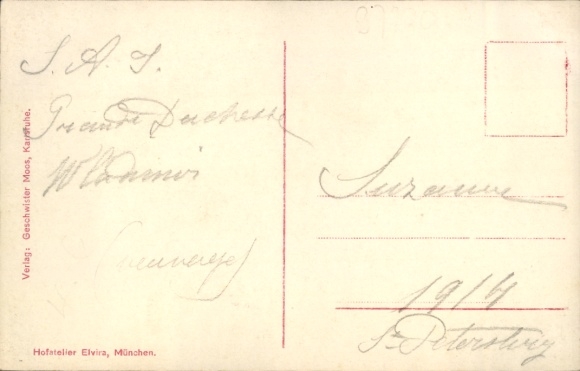 S. A. I.
Grande Duchesse
Wladimir
Suzanne
1914
St Petersburg
Verlag: Geschwister Moos, Karlsruhe.
Hofatelier Elvira, München.